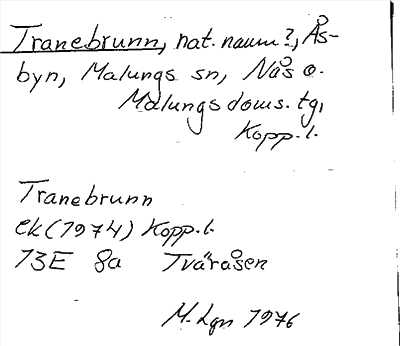 Tranebrunn, nat. naum?, Ås-
byn, Malungs sn, Nås o.
Malungs doms. tg,
Kopp. l.
Tranebrunn
ek (1974) Kopp. l.
13E 8a Tväråsen
M. Lgn 1976